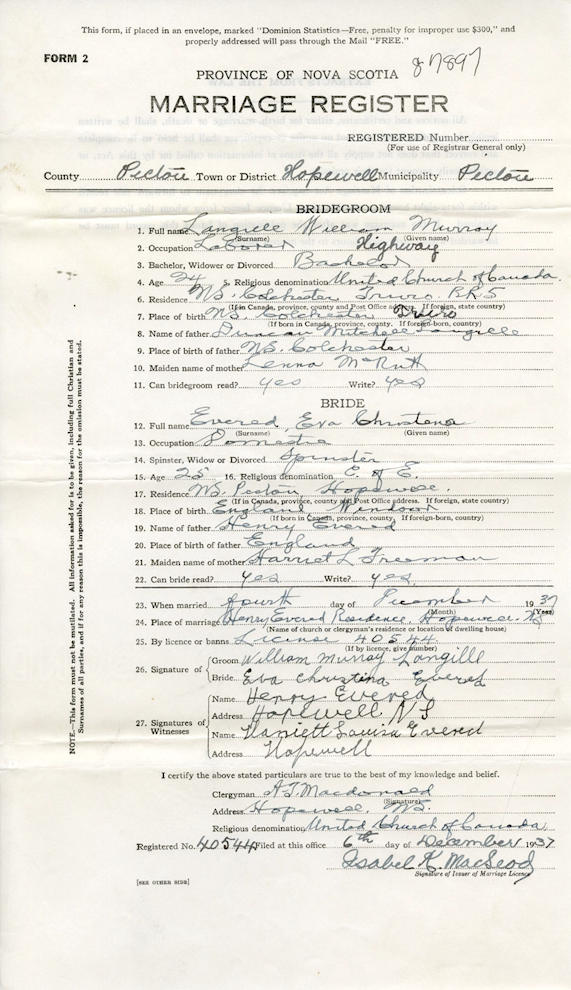 This form, if placed in an envelope, marked "Dominion Statistics—Free, penalty for improper use $300," and
properly addressed will pass through the Mail "FREE."
FORM 2
87897
PROVINCE OF NOVA SCOTIA
MARRIAGE REGISTER
REGISTERED Number
(For use of Registrar General only)
County Pictou Town or District Hopewell Municipality Pictou
BRIDEGROOM
1. Full name Langille William Murray
(Surname) (Given name)
2. Occupation Laborer Highway
3. Bachelor, Widower or Divorced Bachelor
4. Age 24 5. Religious denomination United Church of Canada
6. Residence NS. Colchester Truro RR5
(If in Canada, province, county and Post Office address. If foreign, state country)
7. Place of birth NS. Colchester Truro
(If born in Canada, province, county. If foreign-born, country)
8. Name of father Duncan Mitchell Langille
9. Place of birth of father NS. Colchester
10. Maiden name of mother Lenna
11. Can bridegroom read? yes Write? yes
BRIDE
12. Full name Evered, Eva Christena
(Surname) (Given name)
13. Occupation Domestic
14. Spinster, Widow or Divorced Spinster
15. Age 25 16. Religious denomination C. of E.
17. Residence NS. Pictou, Hopewell.
(If in Canada, province, county and Post Office address. If foreign, state country)
18. Place of birth England Windsor
(If born in Canada, province, county. If foreign-born, country)
19. Name of father Henry Evered
20. Place of birth of father England
21. Maiden name of mother Harriet L Freeman
22. Can bride read? yes Write? yes
23. When married fourth day of December 1937
(Month) (Year)
24. Place of marriage Henry Evered Residence, Hopewell NS
(Name of church or clergyman's residence or location of dwelling house)
25. By licence or banns License 40544
(If by licence, give number)
26. Signature of
Groom William Murray Langille
Bride Eva Christina Evered
27. Signatures of Witnesses
Name Henry Evered
Address Hopewell. N S
Name Harriett Louisa Evered
Address Hopewell
I certify the above stated particulars are true to the best of my knowledge and belief.
Clergyman A. T. Macdonald
(Signature)
Address Hopewell, NS.
Religious denomination United Church of Canada
Registered No. 40544 Filed at this office 6th day of December 1937
Isabel K. MacLeod
Signature of Issuer of Marriage Licence
[SEE OTHER SIDE]
NOTE.—This form must not be mutilated. All information asked for is to be given, including full Christian and
Surnames of all parties, and if for any reason this is impossible, the reason for the omission must be stated.